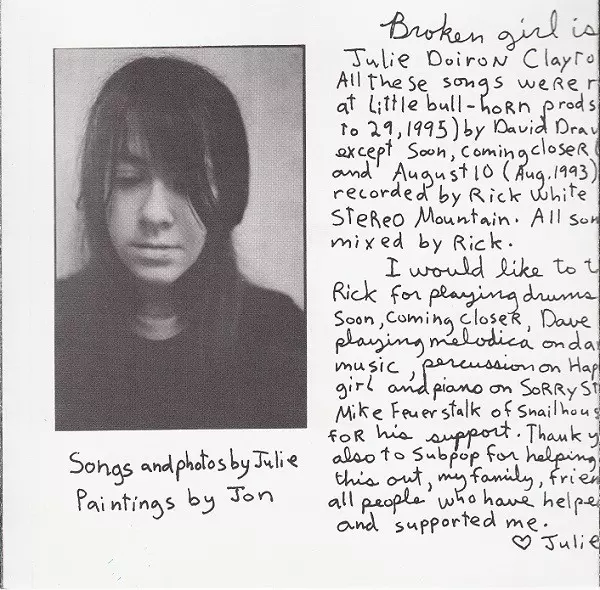 Songs and photos by Julie
Paintings by Jon
Broken girl is
Julie Doiron Clayto
All these songs were r
at Little bull-hoRn prods
to 29, 1995) by David Drav
except Soon, coming closeR (
and August 10 (Aug. 1993)
recorded by Rick White
SteReo Mountain. All son
mixed by Rick.
I would like to t
Rick for playing drums
Soon, Coming closeR, Dave
playing melodica on da
music, percussion on Hap
girl and piano on SoRRy St
Mike Feuerstalk of Snailhous
foR his support. Thank y
also to Subpop for helping
this out, my family, frien
all people who have helpe
and supported me.
♡ Julie